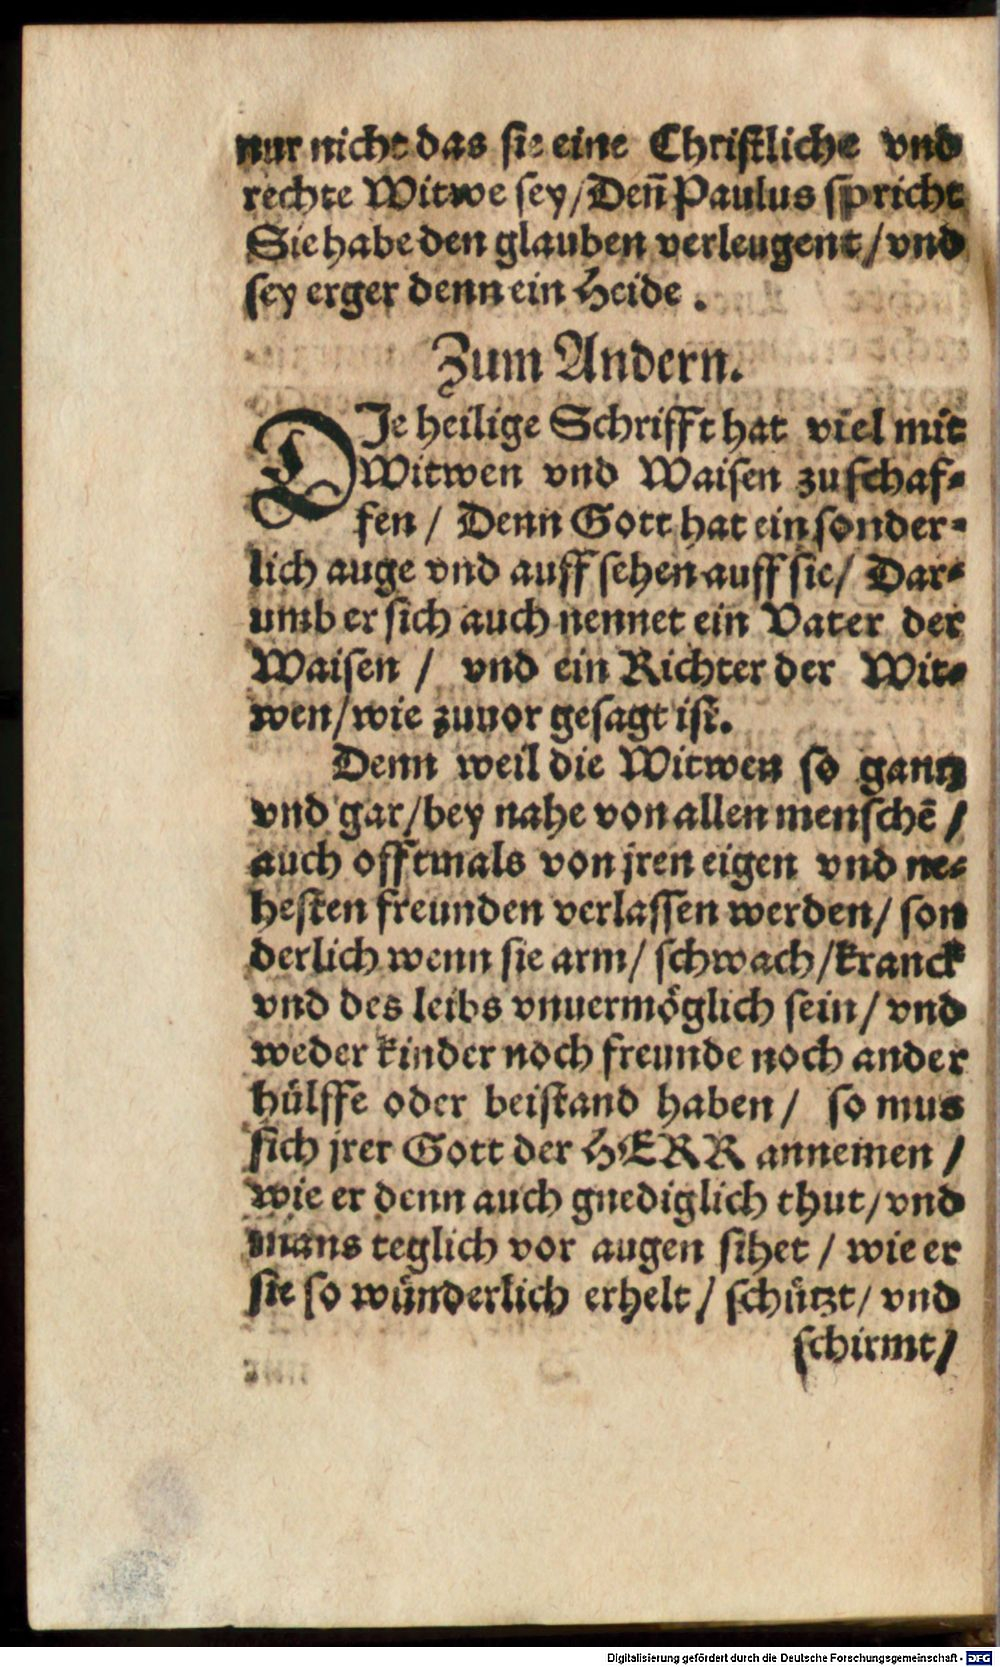 nur nicht das sie eine Christliche vnd
rechte Witwe sey/Deñ Paulus spricht
Sie habe den glauben verleugent/vnd
sey erger denn ein Heide.
Zum Andern.
DIe heilige Schrifft hat viel mit
Witwen vnd Waisen zuschaf-
fen/ Denn Gott hat ein sonder-
lich auge vnd auff sehen auff sie/ Dar-
umb er sich auch nennet ein Vater der
Waisen/ vnd ein Richter der Wit-
wen/wie zuuor gesagt ist.
Denn weil die Witwen so gantz
vnd gar/bey nahe von allen menschē/
auch offtmals von jren eigen vnd ne-
hesten freunden verlassen werden/ son
derlich wenn sie arm/ schwach/kranck
vnd des leibs vnuermöglich sein/ vnd
weder kinder noch freunde noch ander
hülffe oder beistand haben/ so mus
sich jrer Gott der HERR annemen/
wie er denn auch gnediglich thut/vnd
mans teglich vor augen sihet/ wie er
sie so wünderlich erhelt/ schützt/ vnd
schirmt/
Digitalisierung gefördert durch die Deutsche Forschungsgemeinschaft - DFG